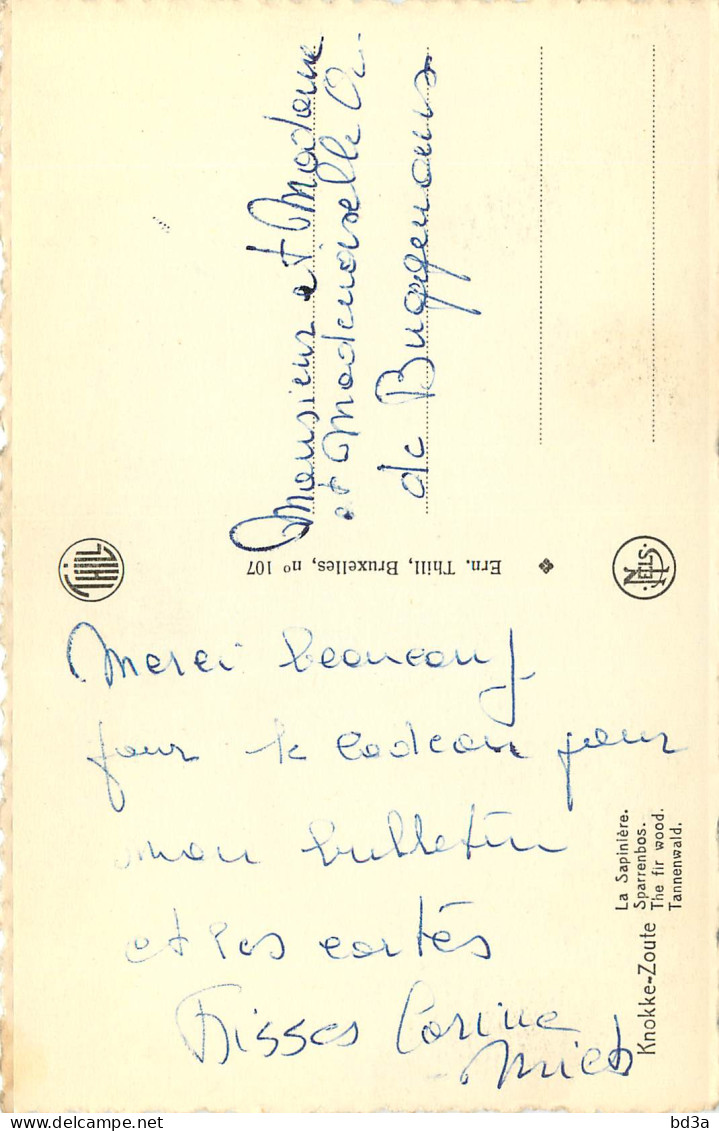 Monsieur et Madame
et Mademoiselle
de Buggenoms
THILL
Ern. Thill, Bruxelles, nº 107
NELS
Merci beaucoup
pour le cadeau pour
mon bulletin
et les cartes
Bisses Corine
Knokke-Zoute
La Sapinière.
Sparrenbos.
The fir wood.
Tannenwald.
bd3a